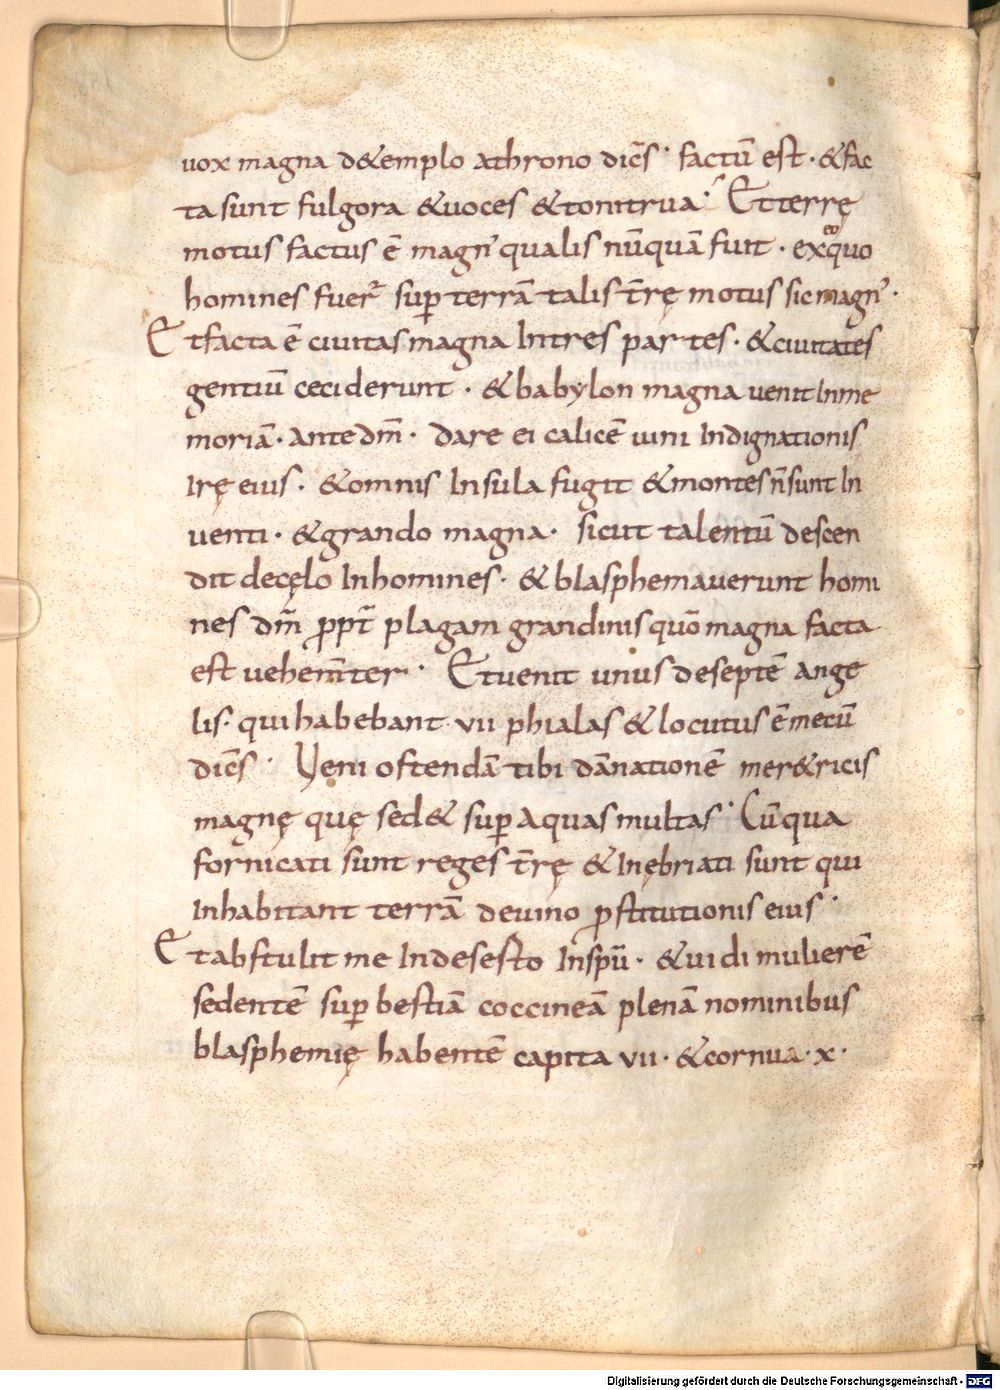 uox magna d&emplo athrono dic̄s · factū est · &fac
ta sunt fulgora &uoces &tonitrua · Et terrę
motus factus ē magn᾿ qualis nūquā fuit · ex eo quo
homines fuer̄ sup̄ terrā talis t̄rę motus sic magn᾿ ·
Et facta ē ciuitas magna Intres partes · &ciuitates
gentiū ceciderunt · &babylon magna uenit Inme
moriā · Ante dm̄ · dare ei calicē uini Indignationis
Irę eius · &omnis Insula fugit &montes n̄ sunt In
uenti · &grando magna · sicut talentū descen
dit decęlo Inhomines · &blasphemauerunt homi
nes dm̄ ꝓpt̄ plagam grandinis quō magna facta
est uehem̄ter · Et uenit unus desepte̅ ange
lis · qui habebant · vii phialas &locutus ē mecū
dic̄s · Veni ostendā tibi dānationē mer&ricis
magnę quę sed& sup̄ Aquas multas · Cū qua
fornicati sunt reges t̄rę &Inębriati sunt qui
Inhabitant terrā deuino ꝓstitutionis eius ·
Et abstulit me Indesesto Inspū · &uidi mulierē
sedentē sup̄ bestiā coccineā plenā nominibus
blasphemię habentē capita vii · &cornua · x ·
Digitalisierung gefördert durch die Deutsche Forschungsgemeinschaft - DFG